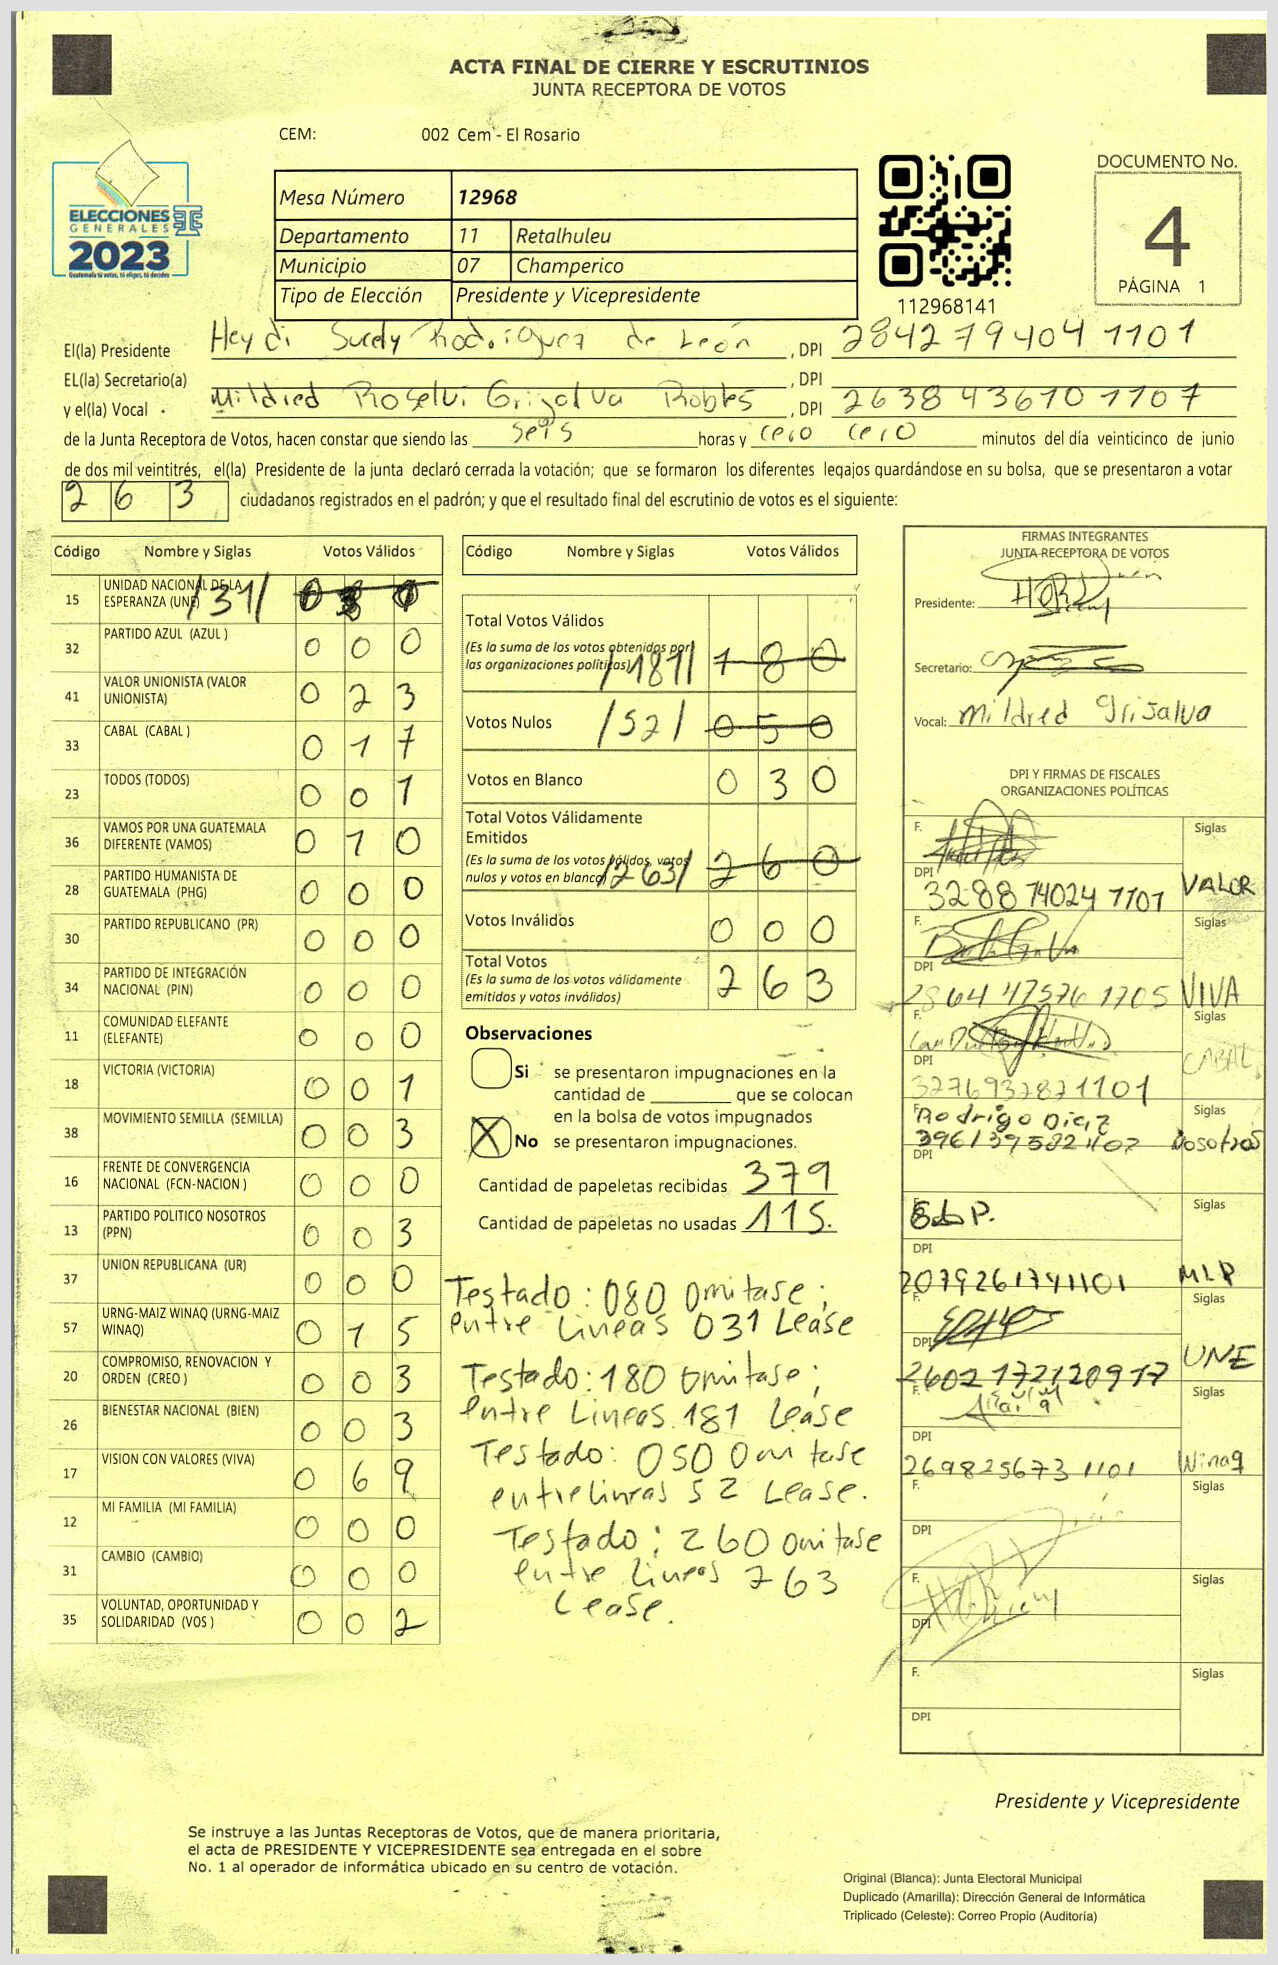 ACTA FINAL DE CIERRE Y ESCRUTINIOS
JUNTA RECEPTORA DE VOTOS
CEM: 002 Cem - El Rosario
ELECCIONES
GENERALES
2023
Guatemala tú votas, tú eliges, tú decides
Mesa Número 12968
Departamento 11 Retalhuleu
Municipio 07 Champerico
Tipo de Elección Presidente y Vicepresidente
112968141
DOCUMENTO No.
4
PÁGINA 1
El(la) Presidente Heydi Surdy Rodriguez de León, DPI 2842 79404 1101
EL(la) Secretario(a) , DPI
y el(la) Vocal Mildred Roselvi Grijalva Robles, DPI 2638 43610 1107
de la Junta Receptora de Votos, hacen constar que siendo las seis horas y cero cero minutos del día veinticinco de junio
de dos mil veintitrés, el(la) Presidente de la junta declaró cerrada la votación; que se formaron los diferentes legajos guardándose en su bolsa, que se presentaron a votar
263 ciudadanos registrados en el padrón; y que el resultado final del escrutinio de votos es el siguiente:
Código Nombre y Siglas Votos Válidos
15 UNIDAD NACIONAL DE LA ESPERANZA (UNE) /31/
32 PARTIDO AZUL (AZUL ) 0 0 0
41 VALOR UNIONISTA (VALOR UNIONISTA) 0 2 3
33 CABAL (CABAL ) 0 1 7
23 TODOS (TODOS) 0 0 1
36 VAMOS POR UNA GUATEMALA DIFERENTE (VAMOS) 0 1 0
28 PARTIDO HUMANISTA DE GUATEMALA (PHG) 0 0 0
30 PARTIDO REPUBLICANO (PR) 0 0 0
34 PARTIDO DE INTEGRACIÓN NACIONAL (PIN) 0 0 0
11 COMUNIDAD ELEFANTE (ELEFANTE) 0 0 0
18 VICTORIA (VICTORIA) 0 0 1
38 MOVIMIENTO SEMILLA (SEMILLA) 0 0 3
16 FRENTE DE CONVERGENCIA NACIONAL (FCN-NACION ) 0 0 0
13 PARTIDO POLITICO NOSOTROS (PPN) 0 0 3
37 UNION REPUBLICANA (UR) 0 0 0
57 URNG-MAIZ WINAQ (URNG-MAIZ WINAQ) 0 1 5
20 COMPROMISO, RENOVACION Y ORDEN (CREO ) 0 0 3
26 BIENESTAR NACIONAL (BIEN) 0 0 3
17 VISION CON VALORES (VIVA) 0 6 9
12 MI FAMILIA (MI FAMILIA) 0 0 0
31 CAMBIO (CAMBIO) 0 0 0
35 VOLUNTAD, OPORTUNIDAD Y SOLIDARIDAD (VOS ) 0 0 2
Código Nombre y Siglas Votos Válidos
Total Votos Válidos
(Es la suma de los votos obtenidos por
las organizaciones políticas) /181/ 1 8 0
Votos Nulos /52/ 0 5 0
Votos en Blanco 0 3 0
Total Votos Válidamente
Emitidos
(Es la suma de los votos válidos, votos
nulos y votos en blanco) /263/ 2 6 0
Votos Inválidos 0 0 0
Total Votos
(Es la suma de los votos válidamente
emitidos y votos inválidos) 2 6 3
Observaciones
Si se presentaron impugnaciones en la
cantidad de ________ que se colocan
en la bolsa de votos impugnados
X No se presentaron impugnaciones.
Cantidad de papeletas recibidas 379
Cantidad de papeletas no usadas 115.
Testado: 080 Omitase;
entre Lineas 031 Lease
Testado: 180 Omitase;
entre Lineas 181 Lease
Testado: 050 Omitase
entrelineas 52 Lease.
Testado: 260 Omitase
entre lineas 263
Lease.
FIRMAS INTEGRANTES
JUNTA RECEPTORA DE VOTOS
Presidente:
Secretario:
Vocal: Mildred Grijalva
DPI Y FIRMAS DE FISCALES
ORGANIZACIONES POLÍTICAS
F. Siglas
DPI 3288 74024 1101 VALOR
F. Siglas
DPI 2864 47576 1705 VIVA
F. Siglas
DPI 3276932871101 CABAL
F. Rodrigo Diaz Siglas
DPI 3961395821107 Nosotros
F. Siglas
DPI 2079261741101 MLP
F. Siglas
DPI 2602172120917 UNE
F. Siglas
DPI 2698256731101 Winaq
F. Siglas
DPI
F. Siglas
DPI
F. Siglas
DPI
Presidente y Vicepresidente
Se instruye a las Juntas Receptoras de Votos, que de manera prioritaria,
el acta de PRESIDENTE Y VICEPRESIDENTE sea entregada en el sobre
No. 1 al operador de informática ubicado en su centro de votación.
Original (Blanca): Junta Electoral Municipal
Duplicado (Amarilla): Dirección General de Informática
Triplicado (Celeste): Correo Propio (Auditoría)